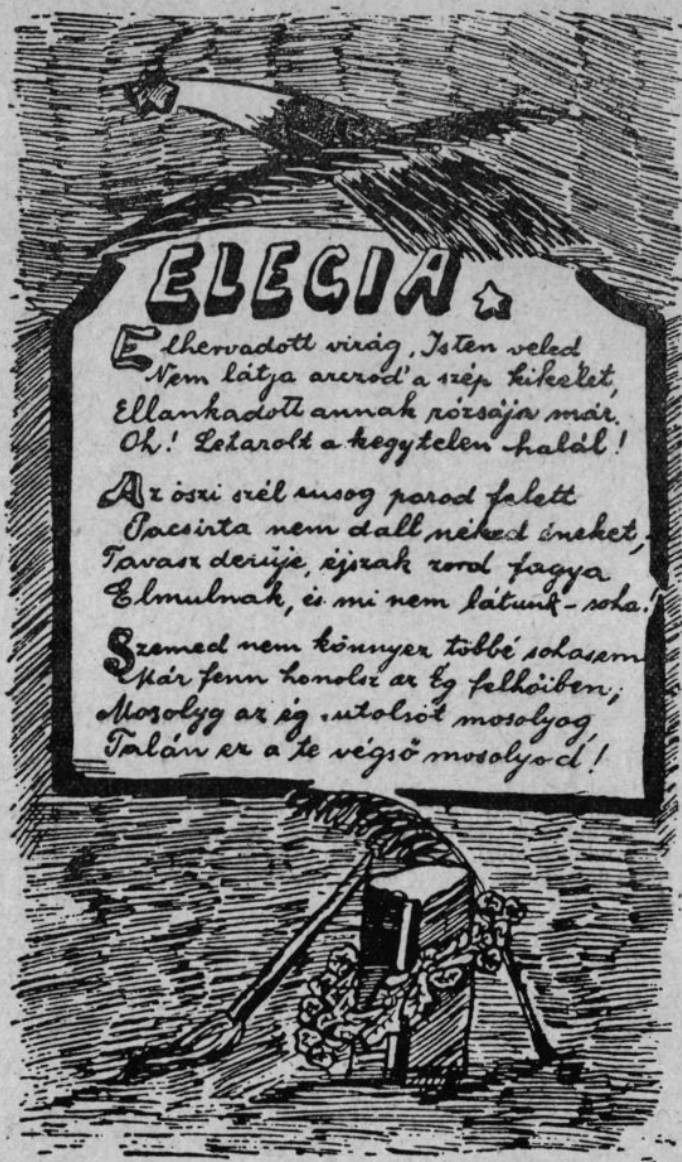 ELEGIA
Elhervadott virág, Isten veled
Nem látja arczod' a szép kikelet,
Ellankadott annak rózsája már.
Oh! Letarolt a kegytelen halál!
Az őszi szél susog porod felett
Pacsirta nem dall néked éneket,
Tavasz derüje, éjszak zord fagya
Elmulnak, és mi nem látunk - soha!
Szemed nem könnyez többé sohasem
Már fenn honolsz az Ég felhőiben;
Mosolyg az ég utolsót mosolyog,
Talán ez a te végső mosolyod!